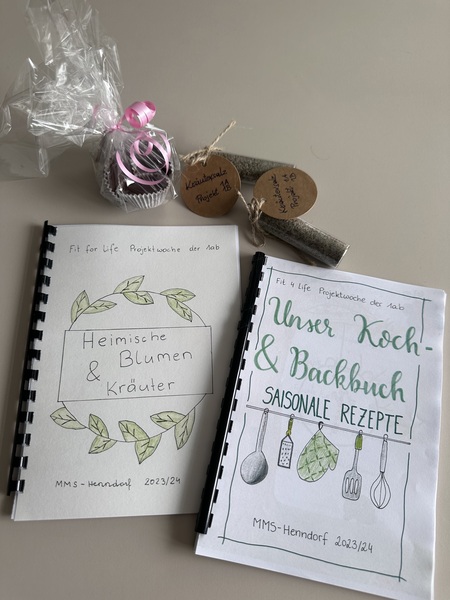 Kräutersalz
Projekt 1B
Projekt 1B
Kräutersalz
Fit for Life Projektwoche der 1ab
Heimische
& Blumen
Kräuter
MMS-Henndorf 2023/24
Fit 4 Life Projektwoche der 1ab
Unser Koch-
& Backbuch
SAISONALE REZEPTE
MMS-Henndorf 2023/24